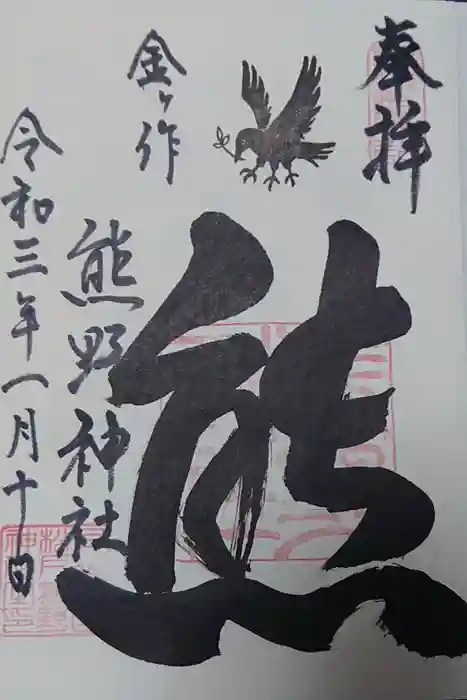 奉拝
熊
金ヶ作
熊野神社
令和三年一月十日